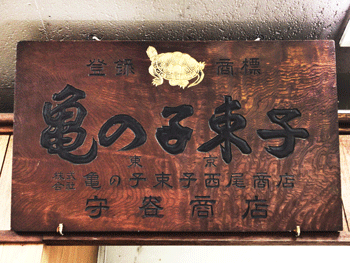 登録 商標
亀の子束子
東京
株式会社 亀の子束子西尾商店
守谷商店